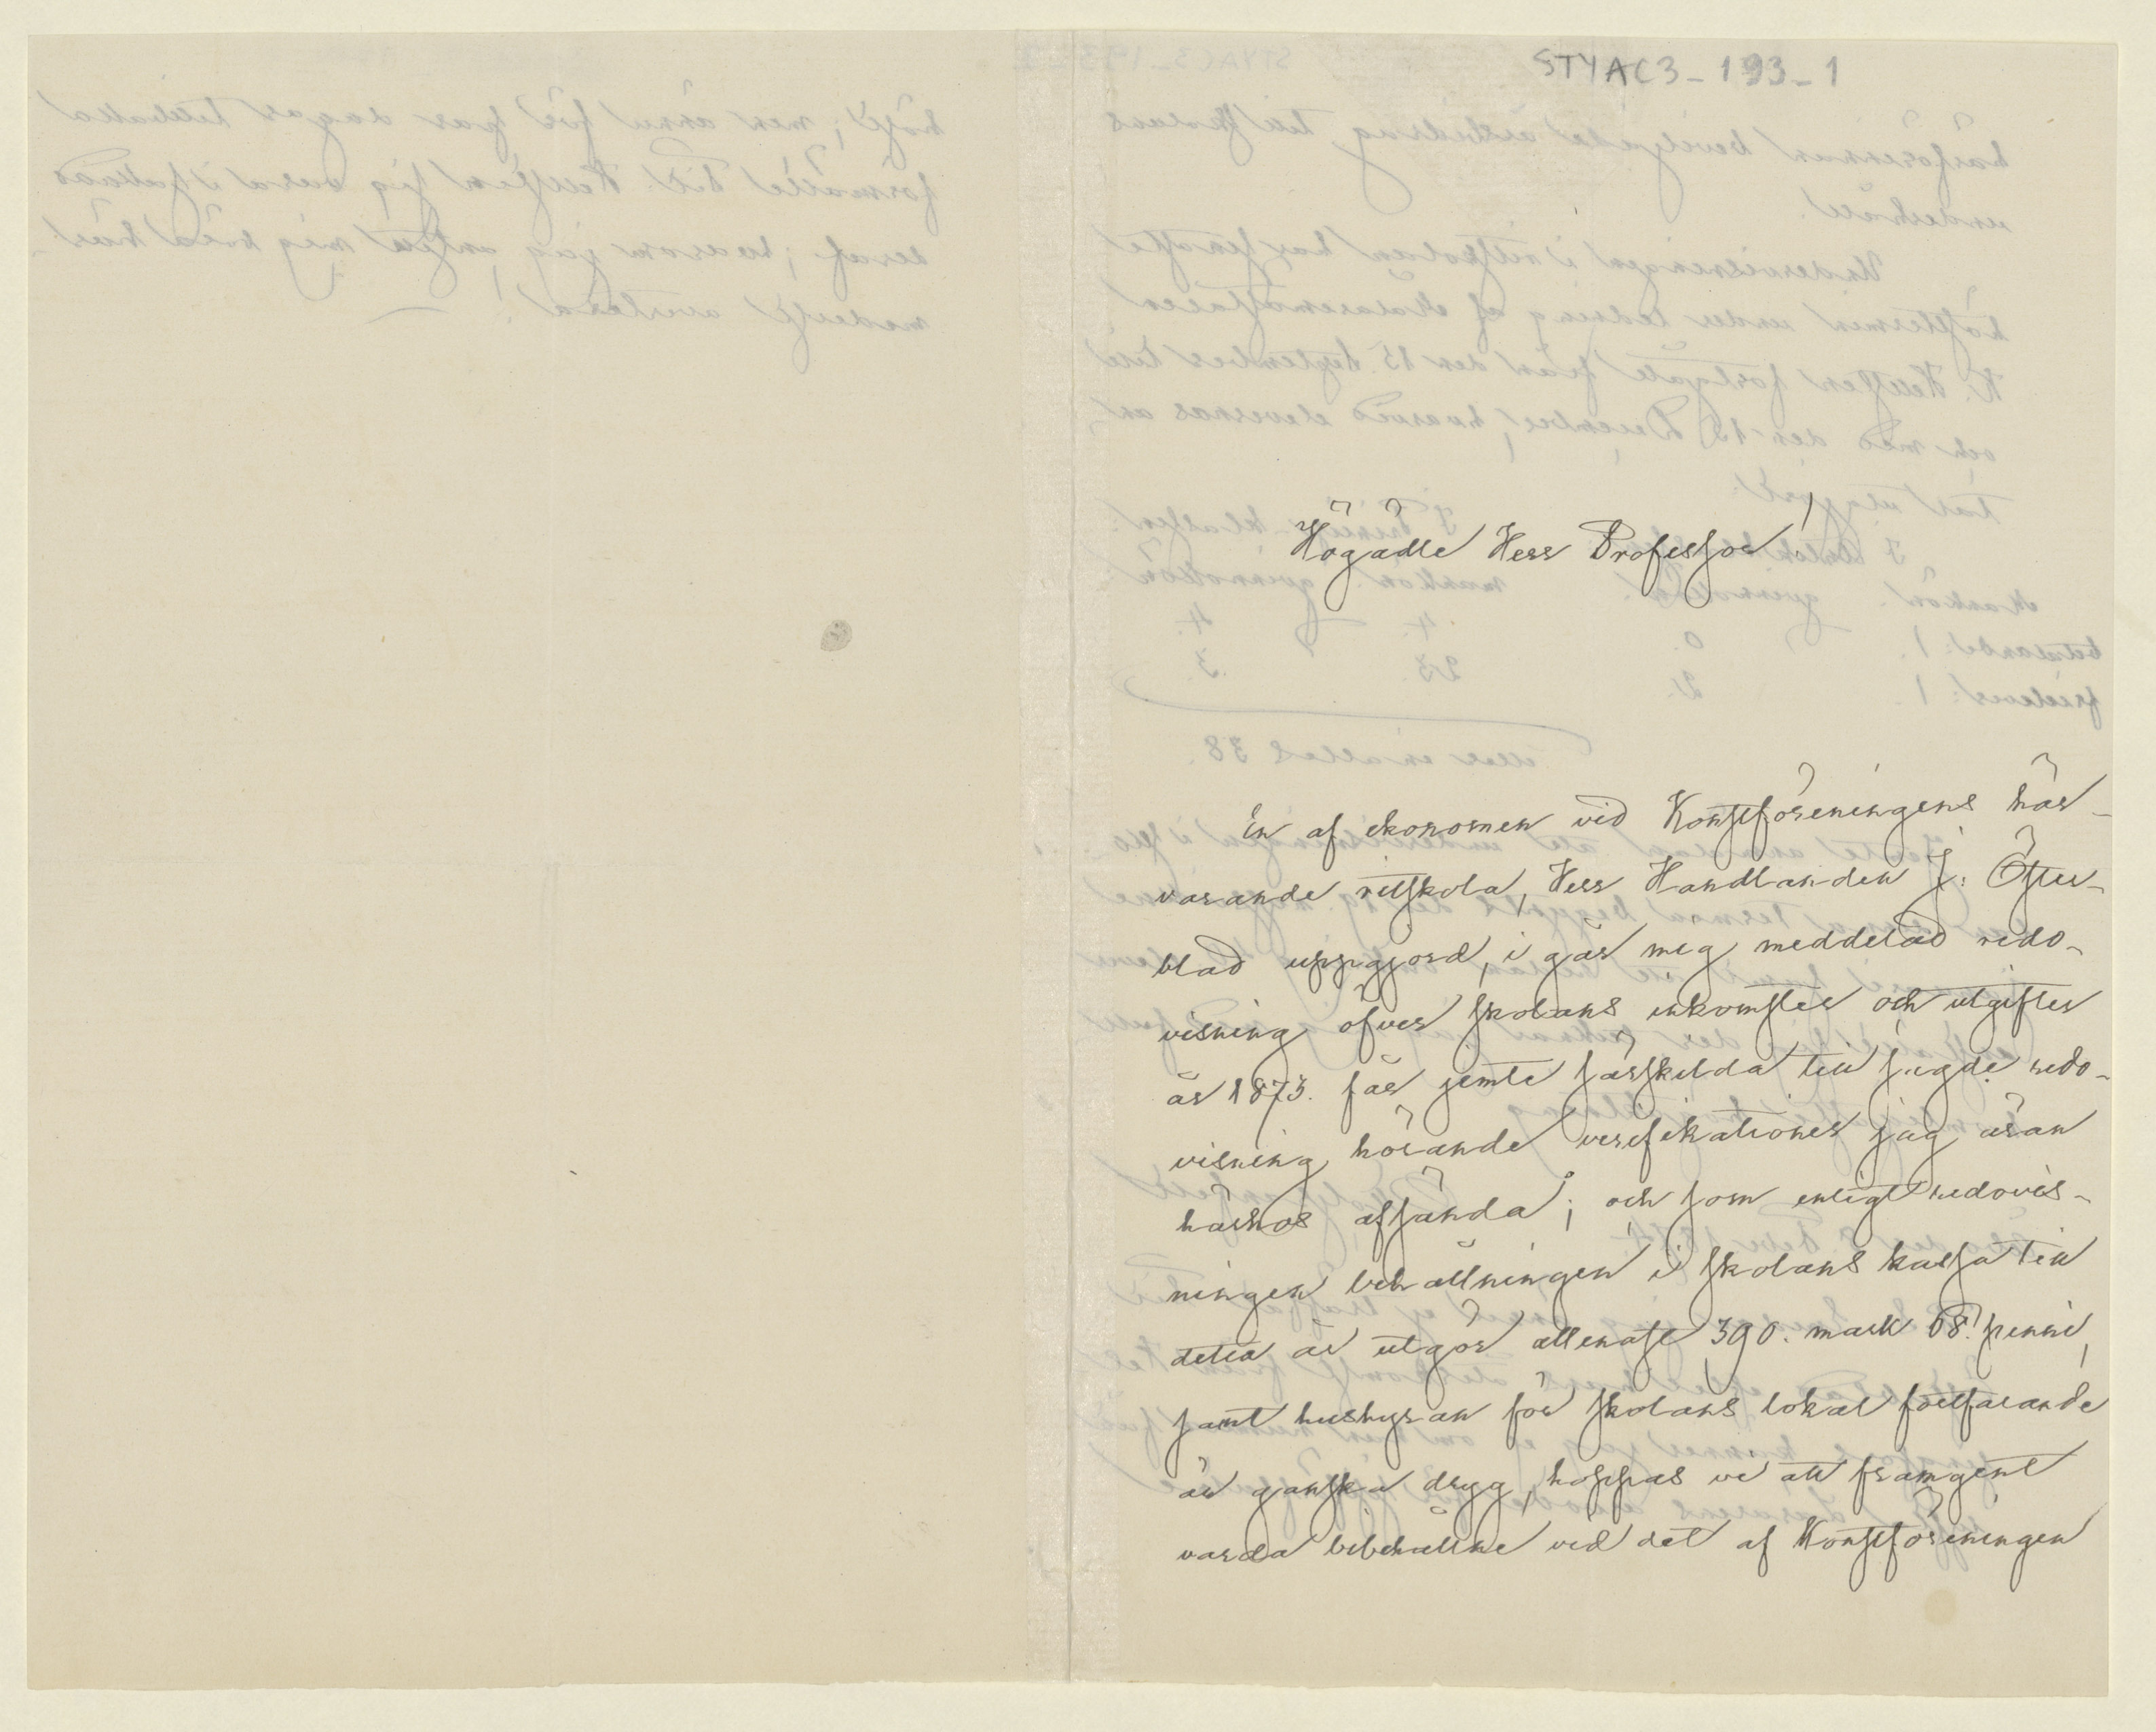 STYAC3_193_1
Högädle Herr Professor!
En af ekonomen vid Konstföreningens här-
varande ritskola, Herr Handlanden J. Öster-
blad uppgjord, i går mig meddelad redo-
visning öfver skolans inkomster och utgifter
år 1873. får jemte särskilda till sagde redo-
visning hörande verifikationer jag äran
härhos afsända; och som enligt redovis-
ningen behållningen i skolans kassa till
detta år utgör allenast 390. mark 68. penni,
samt hushyran för skolans lokal fortfarande
är ganska dryg, hoppas vi att framgent
varda bibehållne vid det af Konstföreningen